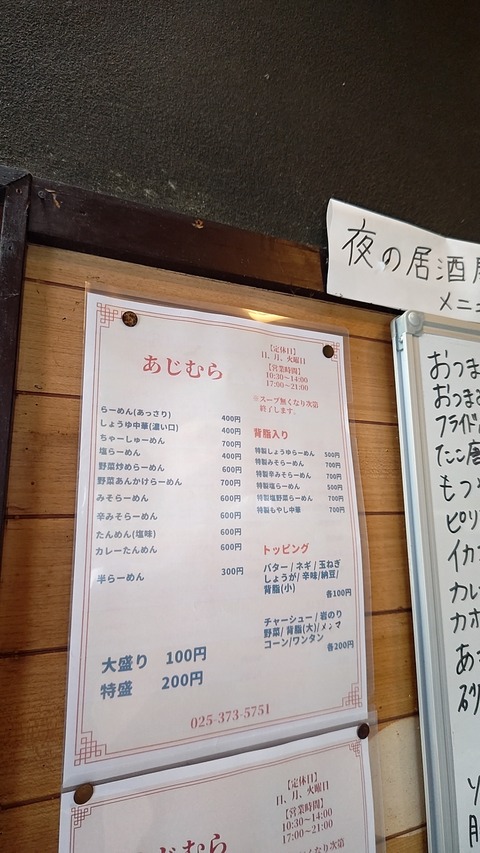 夜の居酒
メニ
あじむら
【定休日】
日、月、火曜日
【営業時間】
10:30~14:00
17:00~21:00
※スープ無くなり次第
終了します。
らーめん(あっさり) 400円
しょうゆ中華(濃い口) 400円
ちゃーしゅーめん 700円
塩らーめん 400円
野菜炒めらーめん 600円
野菜あんかけらーめん 700円
みそらーめん 600円
辛みそらーめん 600円
たんめん(塩味) 600円
カレーたんめん 600円
半らーめん 300円
大盛り 100円
特盛 200円
背脂入り
特製しょうゆらーめん 500円
特製みそらーめん 700円
特製辛みそらーめん 700円
特製塩らーめん 500円
特製塩野菜らーめん 700円
特製もやし中華 700円
トッピング
バター / ネギ / 玉ねぎ
しょうが/ 辛味/納豆/
背脂(小)
各100円
チャーシュー / 岩のり
野菜/ 背脂(大)/メンマ
コーン/ワンタン
各200円
025-373-5751
【定休日】
日、月、火曜日
【営業時間】
10:30~14:00
17:00~21:00
じむら
※スープ無くなり次第
おつま
おつまみ
フライド
たこ唐
もつ
ピリ
イカ
カレ
カホ
あ
砂